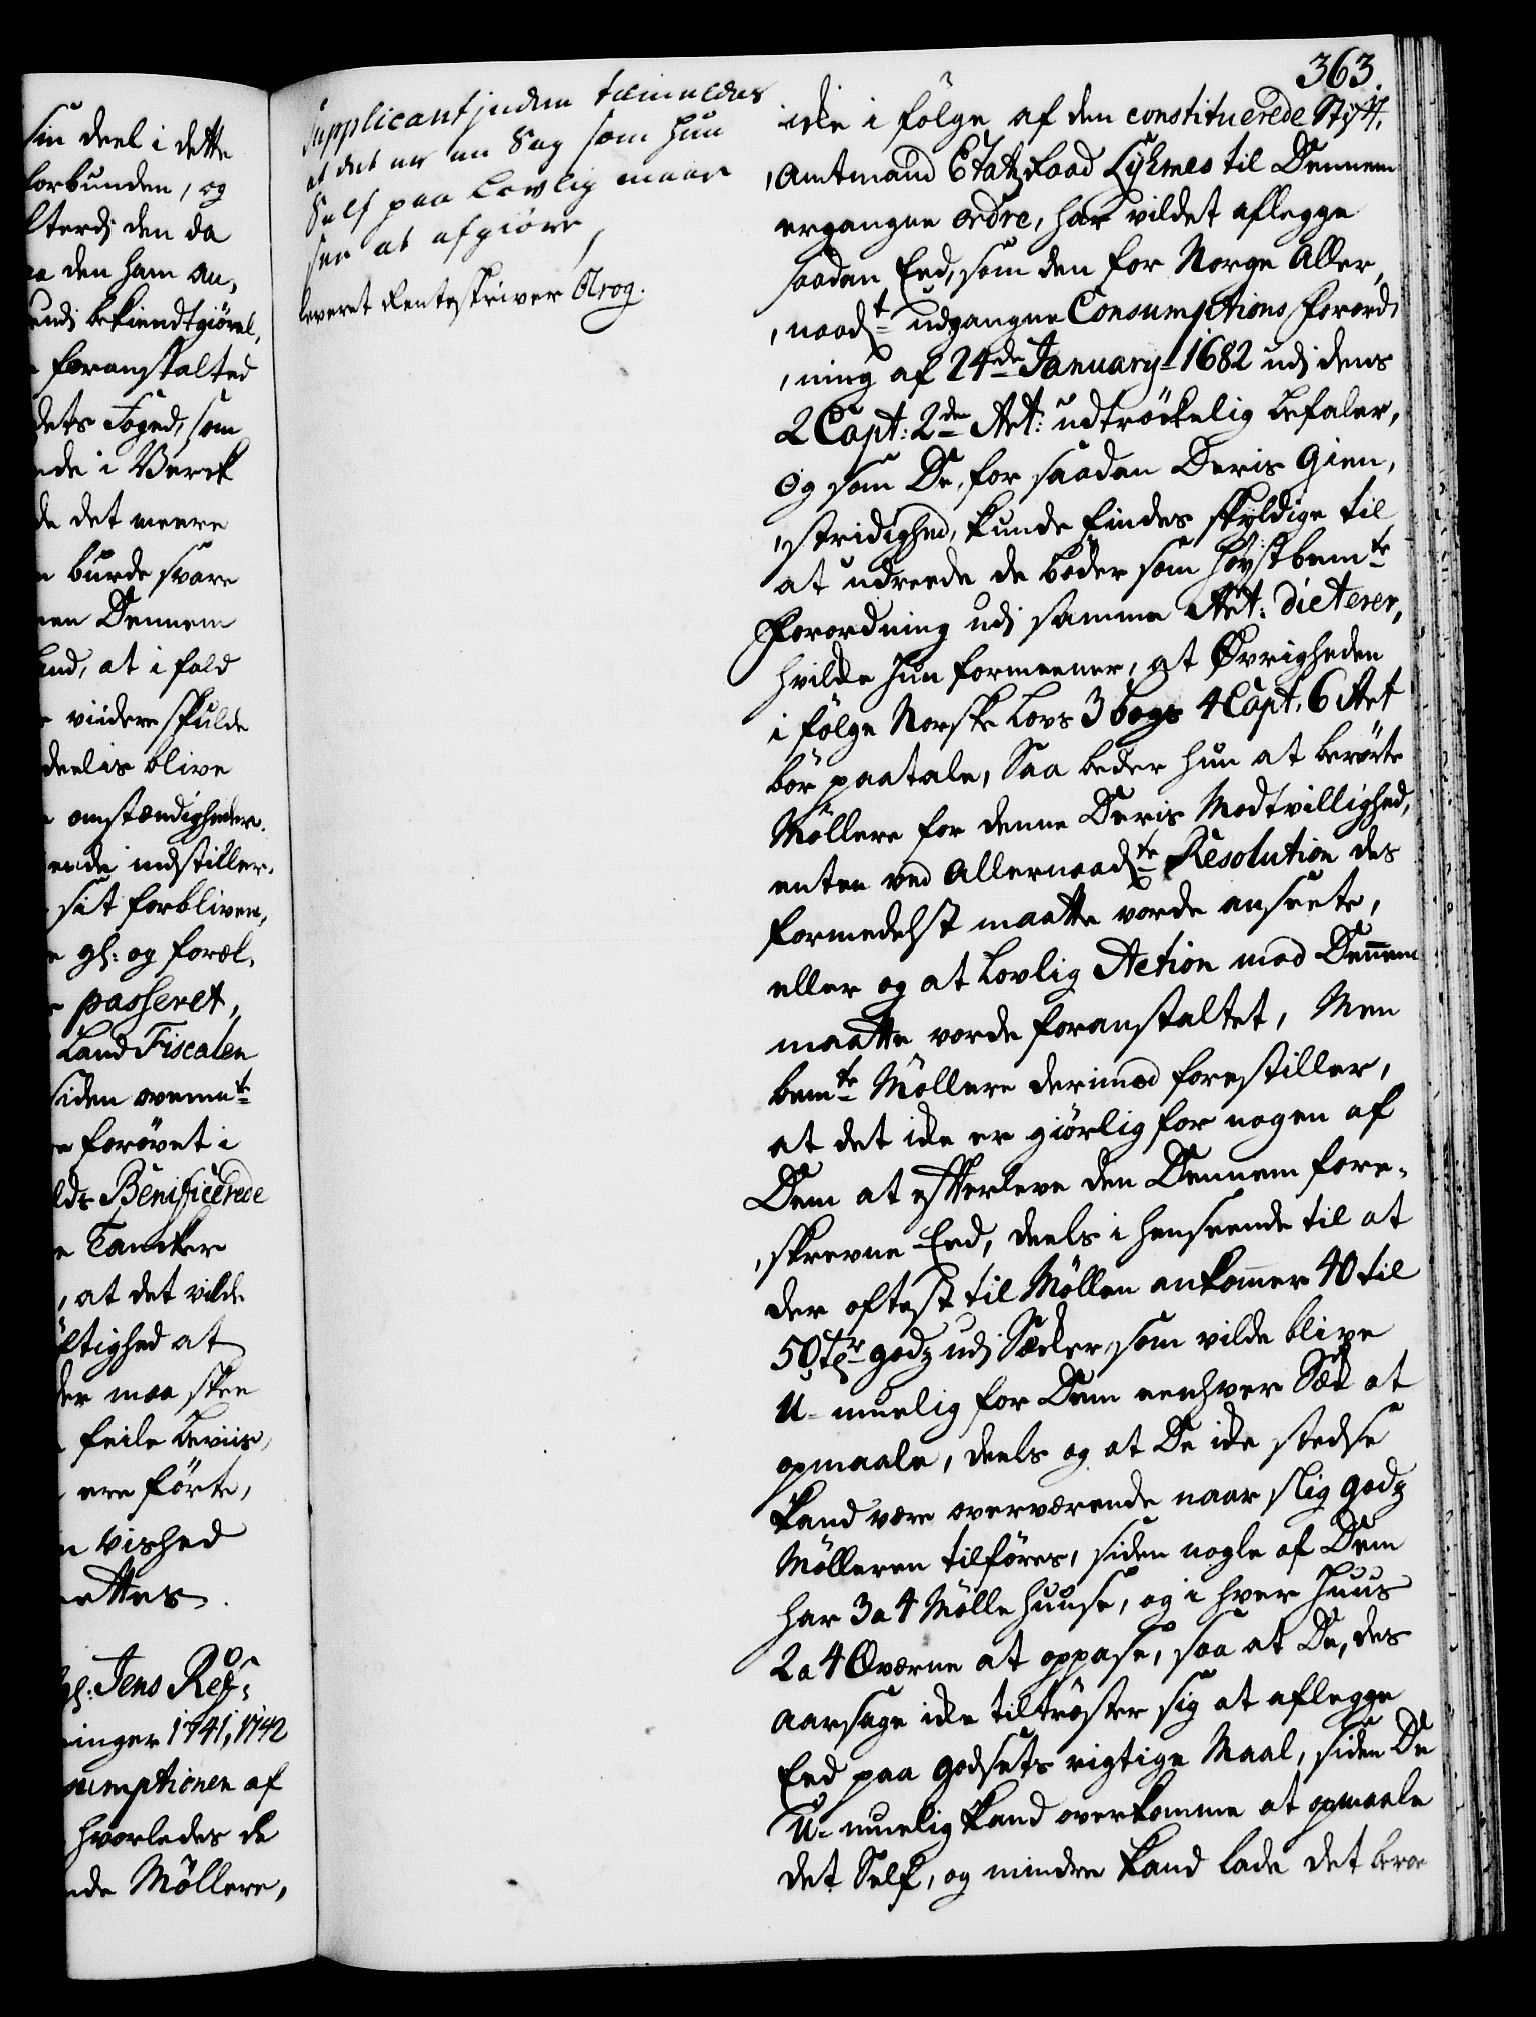 sin deel i dette
forbunden, og
lterdj den da
den ham an,
udj bekiendtgiörel,
foranstalted
dets Foged, som
nde i Verck
de det meere
burde svare
en Dennem
at i fald
viidere skulde
deelis blive
omstændigheder.
ende indstiller.
sit forbliven,
gl: og foræl,
passeret,
Land Fiscalen
siden ovenme
forövet i
Benificerede
Tancker
, at det vilde
ltighed at
der maa skee
feile Beviis,
ere förte,
vished
ettes.
gl: Jens Reg:
inger 1741, 1742
sumptionen af
hvorledes de
nde Möllere,
Supplicantinden tilmeldes
at det er en Sag som hun
Self paa Lovlig maade
see at afgiöre,
leveret Renteskriver Krog.
363.
icke i fölge af den constituerede Stift,
,Amtmand Etatz Raad Lykmes til Dennem
ergangne ordre, har vildet aflegge
saadan Eed, som den for Norge Aller,
,naadt udgangne Consumptions forord,
,ning af 24de January 1682 udj dens
2 Capt: 2den Art: udtröckelig befaler,
Og som De, for saadan Deris Gien,
,stridighed, kunde findes skyldige til
at udreede de böder som höystbemte
Forordning udj samme Art: dicterer,
hvilcke hun formeener, at Övrigheden
i fölge Norske Lovs 3 bogs 4 Capt. 6 Art
bör paatale, Saa beder hun at berörte
Möllere for denne Deris Modtvillighed,
enten ved Allernaadte Resolution des
formedelst maatte vorde ansete,
eller og at Lovlig Action mod Dennem
maatte vorde foranstaltet, Men
bemte Möllere derimod forestiller,
at det icke er giörlig for nogen af
Dem at efterleve den Dennem fore,
,skrevne Eed, deels i henseende til at
der oftest til Möllen ankommer 40 til
50 tdr godz udj Sæcker, som vilde blive
U-muelig for Dem eenhver Sæk at
opmaale, deels og at De icke stedse
kand være overværende naar slig godz
Mölleren tilföres, siden nogle af Dem
har 3 a 4 Mölle huuse, og i hver huus
2 a 4 Qværne at oppasse, saa at De, des
Aarsage icke tiltröster sig at aflegge
Eed paa Godsets rigtige Maal, siden De
U-muelig kand overkomme at opmaale
det Self, og mindre kand lade det beroe